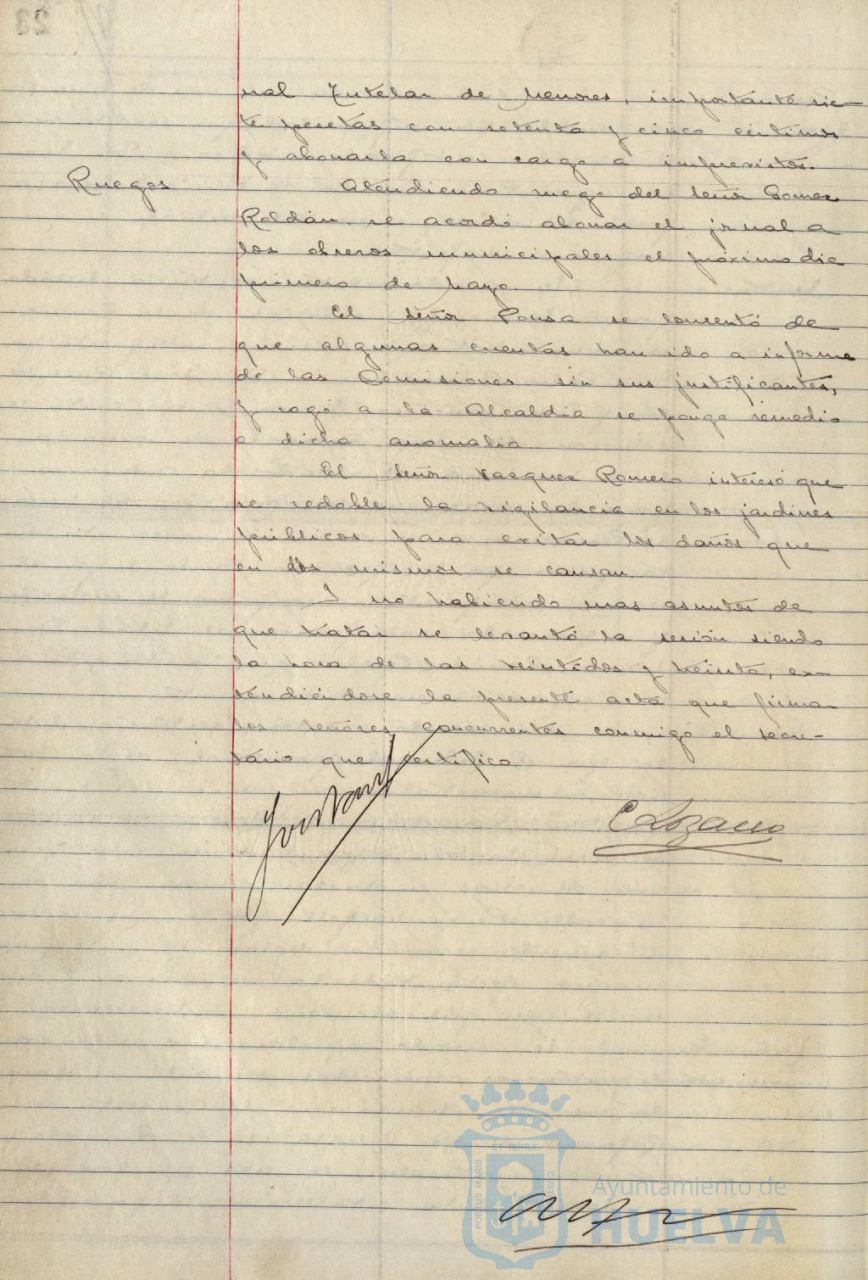 nal Tutelar de Menores, importante sie-
te pesetas con setenta y cinco centimos
y abonarla con cargo a imprevistos.
Ruegos
Atendiendo ruego del señor Gomez
Roldán se acordó abonar el jrnal a
los obreros municipales el próximo dia
primero de Mayo.
El señor Ponsa se lamentó de
que algunas cuentas han ido a informe
de las Comisiones sin sus justificantes,
y rogó a la Alcaldia se ponga remedio
a dicha anomalia.
El señor Vazquez Romero interesó que
se redoble la vigilancia en los jardines
públicos para evitar los daños que
en los mismos se causan.
Y no habiendo mas asuntos de
que tratar se levantó la sesión siendo
la hora de las veintidos y treinta, ex-
tendiéndose la presente acta que firman
los señores concurrentes conmigo el secre-
tario que certifico.
C Lozano
PORTUS MARIS
ET TERRA
Ayuntamiento de
HUELVA